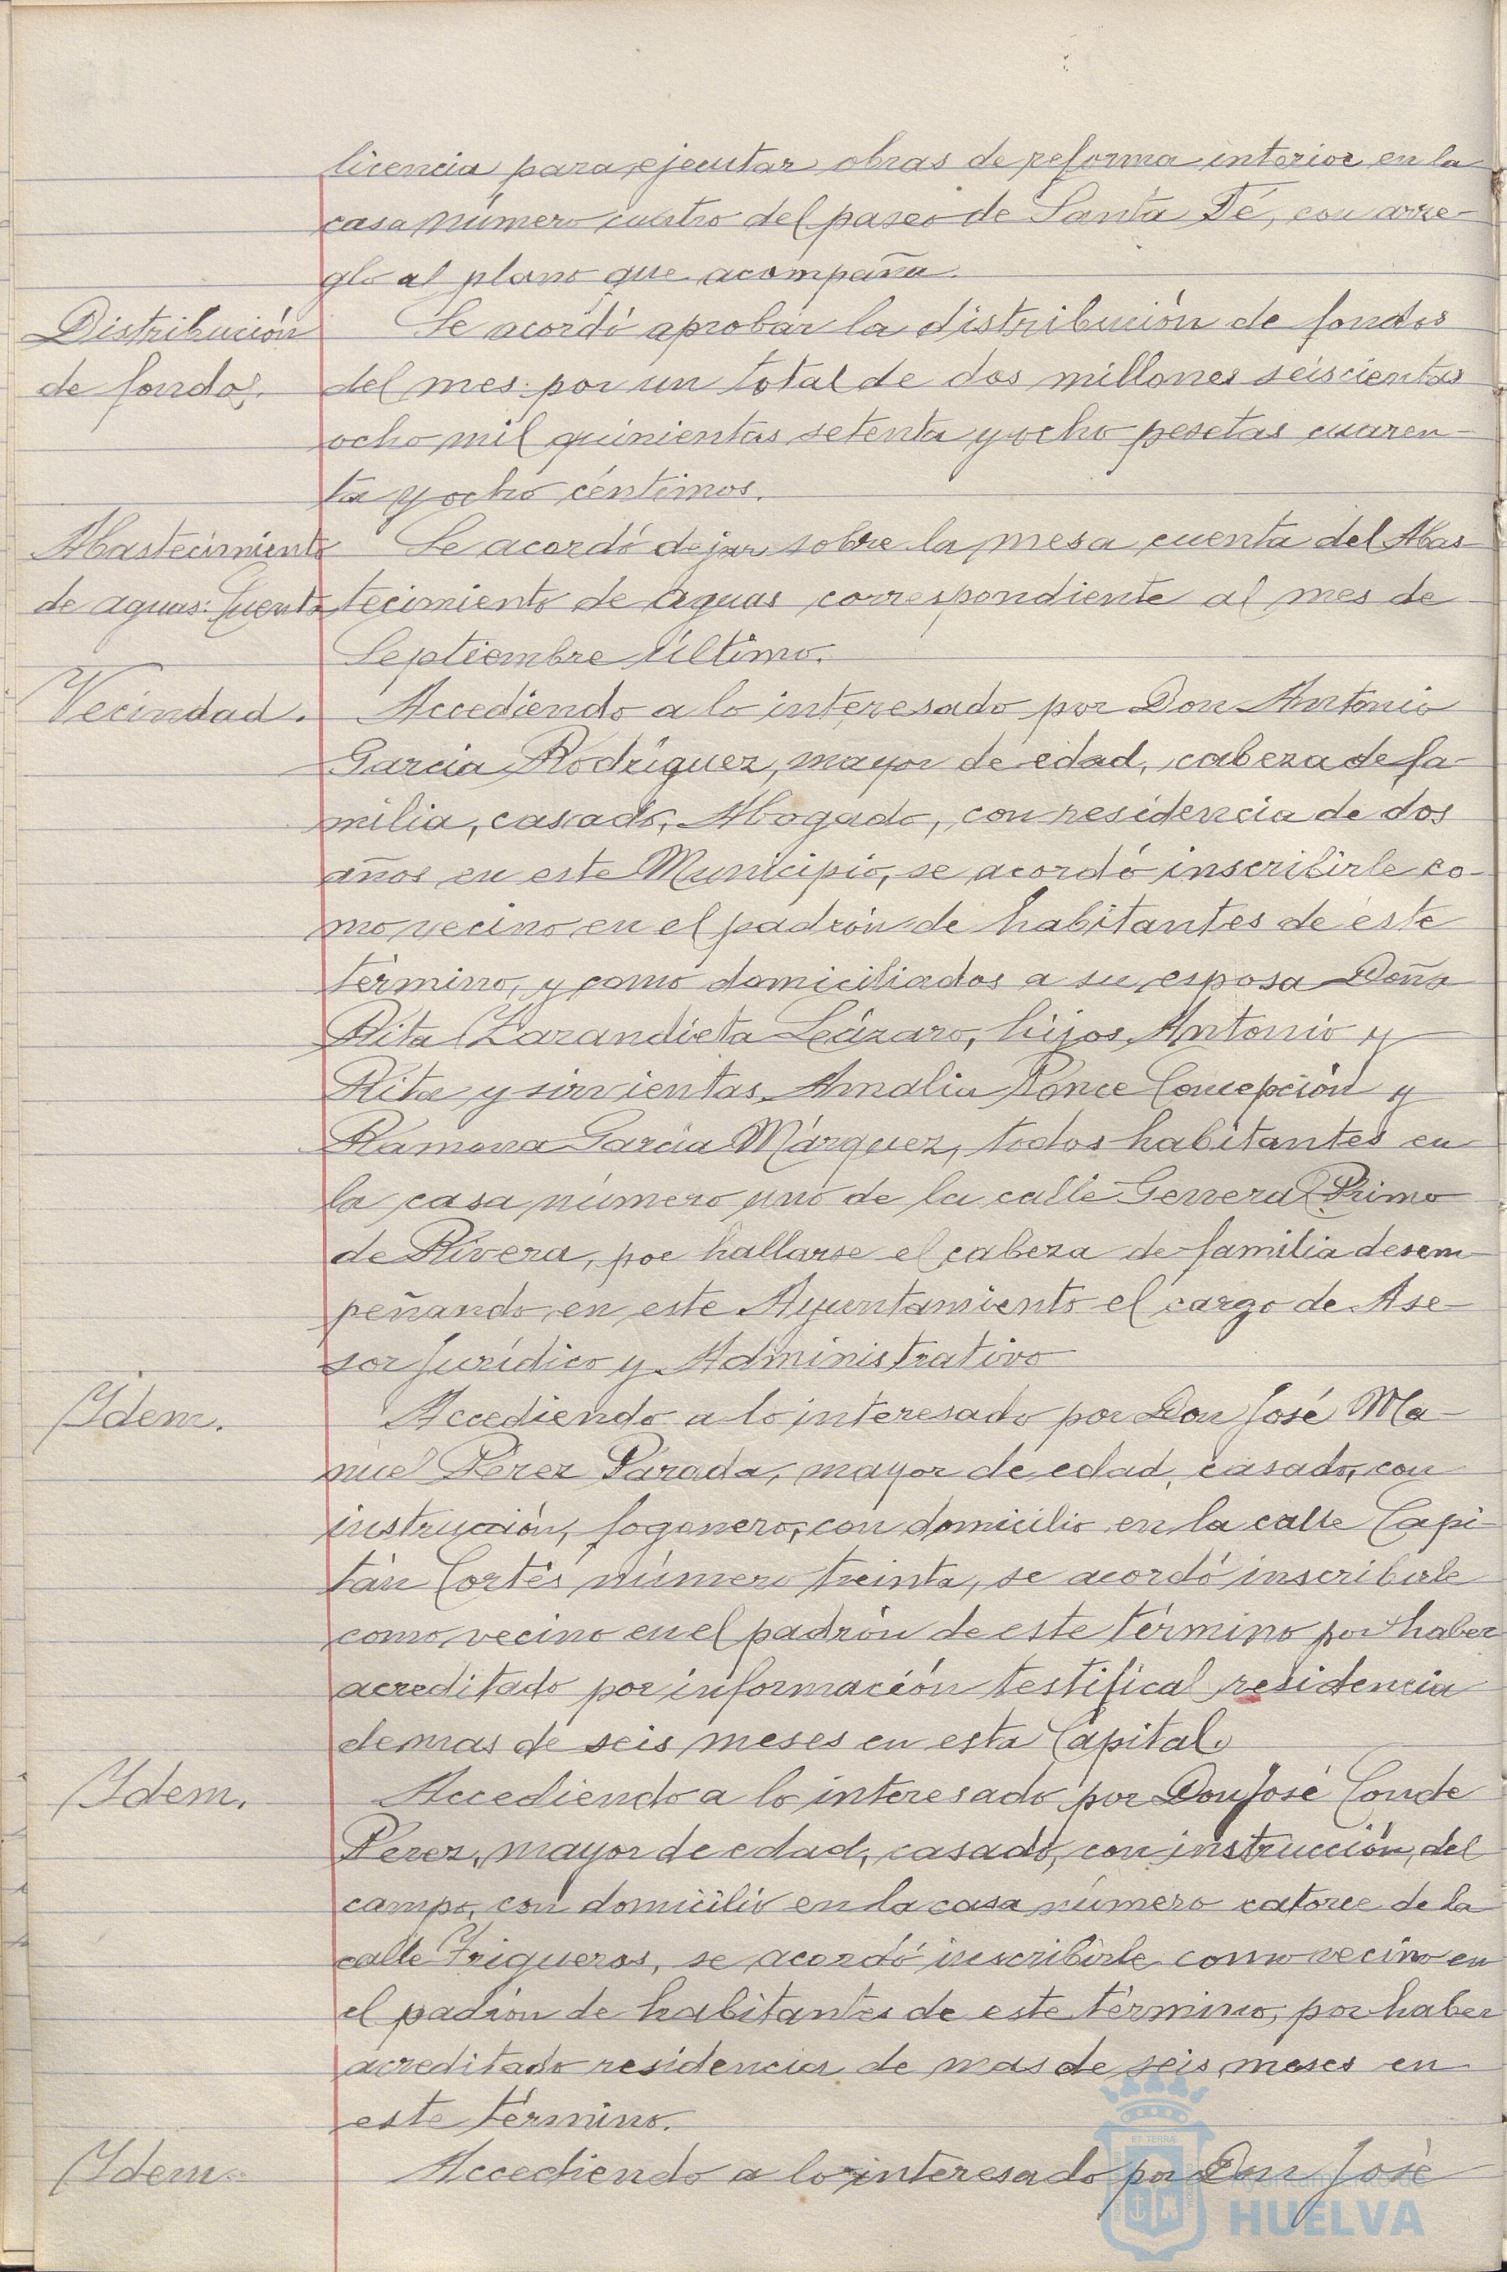 licencia para ejecutar obras de reforma interior en la
casa número cuatro del paseo de Santa Fé, con arre-
glo al plano que acompaña.
Distribución
de fondos.
Se acordó aprobar la distribución de fondos
del mes por un total de dos millones seiscientas
ocho mil quinientas setenta y ocho pesetas cuaren-
ta y ocho céntimos.
Abastecimiento
de aguas: Cuenta
Se acordó dejar sobre la mesa cuenta del Abas-
tecimiento de aguas correspondiente al mes de
Septiembre último.
Vecindad.
Accediendo a lo interesado por Don Antonio
García Rodríguez, mayor de edad, cabeza de fa-
milia, casado, Abogado, con residencia de dos
años en este Municipio, se acordó inscribirle co-
mo vecino en el padrón de habitantes de este
término, y como domiciliados a su esposa Doña
Rita Zarandieta Lázaro, hijos Antonio y
Rita y sirvientas Amalia Ponce Concepción y
Ramona García Márquez, todos habitantes en
la casa número uno de la calle General Primo
de Rivera, por hallarse el cabeza de familia desem-
peñando en este Ayuntamiento el cargo de Ase-
sor Jurídico y Administrativo
Idem.
Accediendo a lo interesado por Don José Ma-
nuel Pérez Parada, mayor de edad, casado, con
instrucción, fogonero, con domicilio en la calle Capi-
tán Cortés número treinta, se acordó inscribirle
como vecino en el padrón de este término por haber
acreditado por información testifical residencia
de mas de seis meses en esta Capital.
Idem.
Accediendo a lo interesado por Don José Conde
Perez, mayor de edad, casado, con instrucción, del
campo, con domicilio en la casa número catorce de la
calle Trigueros, se acordó inscribirle como vecino en
el padrón de habitantes de este término, por haber
acreditado residencia de mas de seis meses en
este término.
Idem.
Accediendo a lo interesado por Don José
Ayuntamiento de
HUELVA